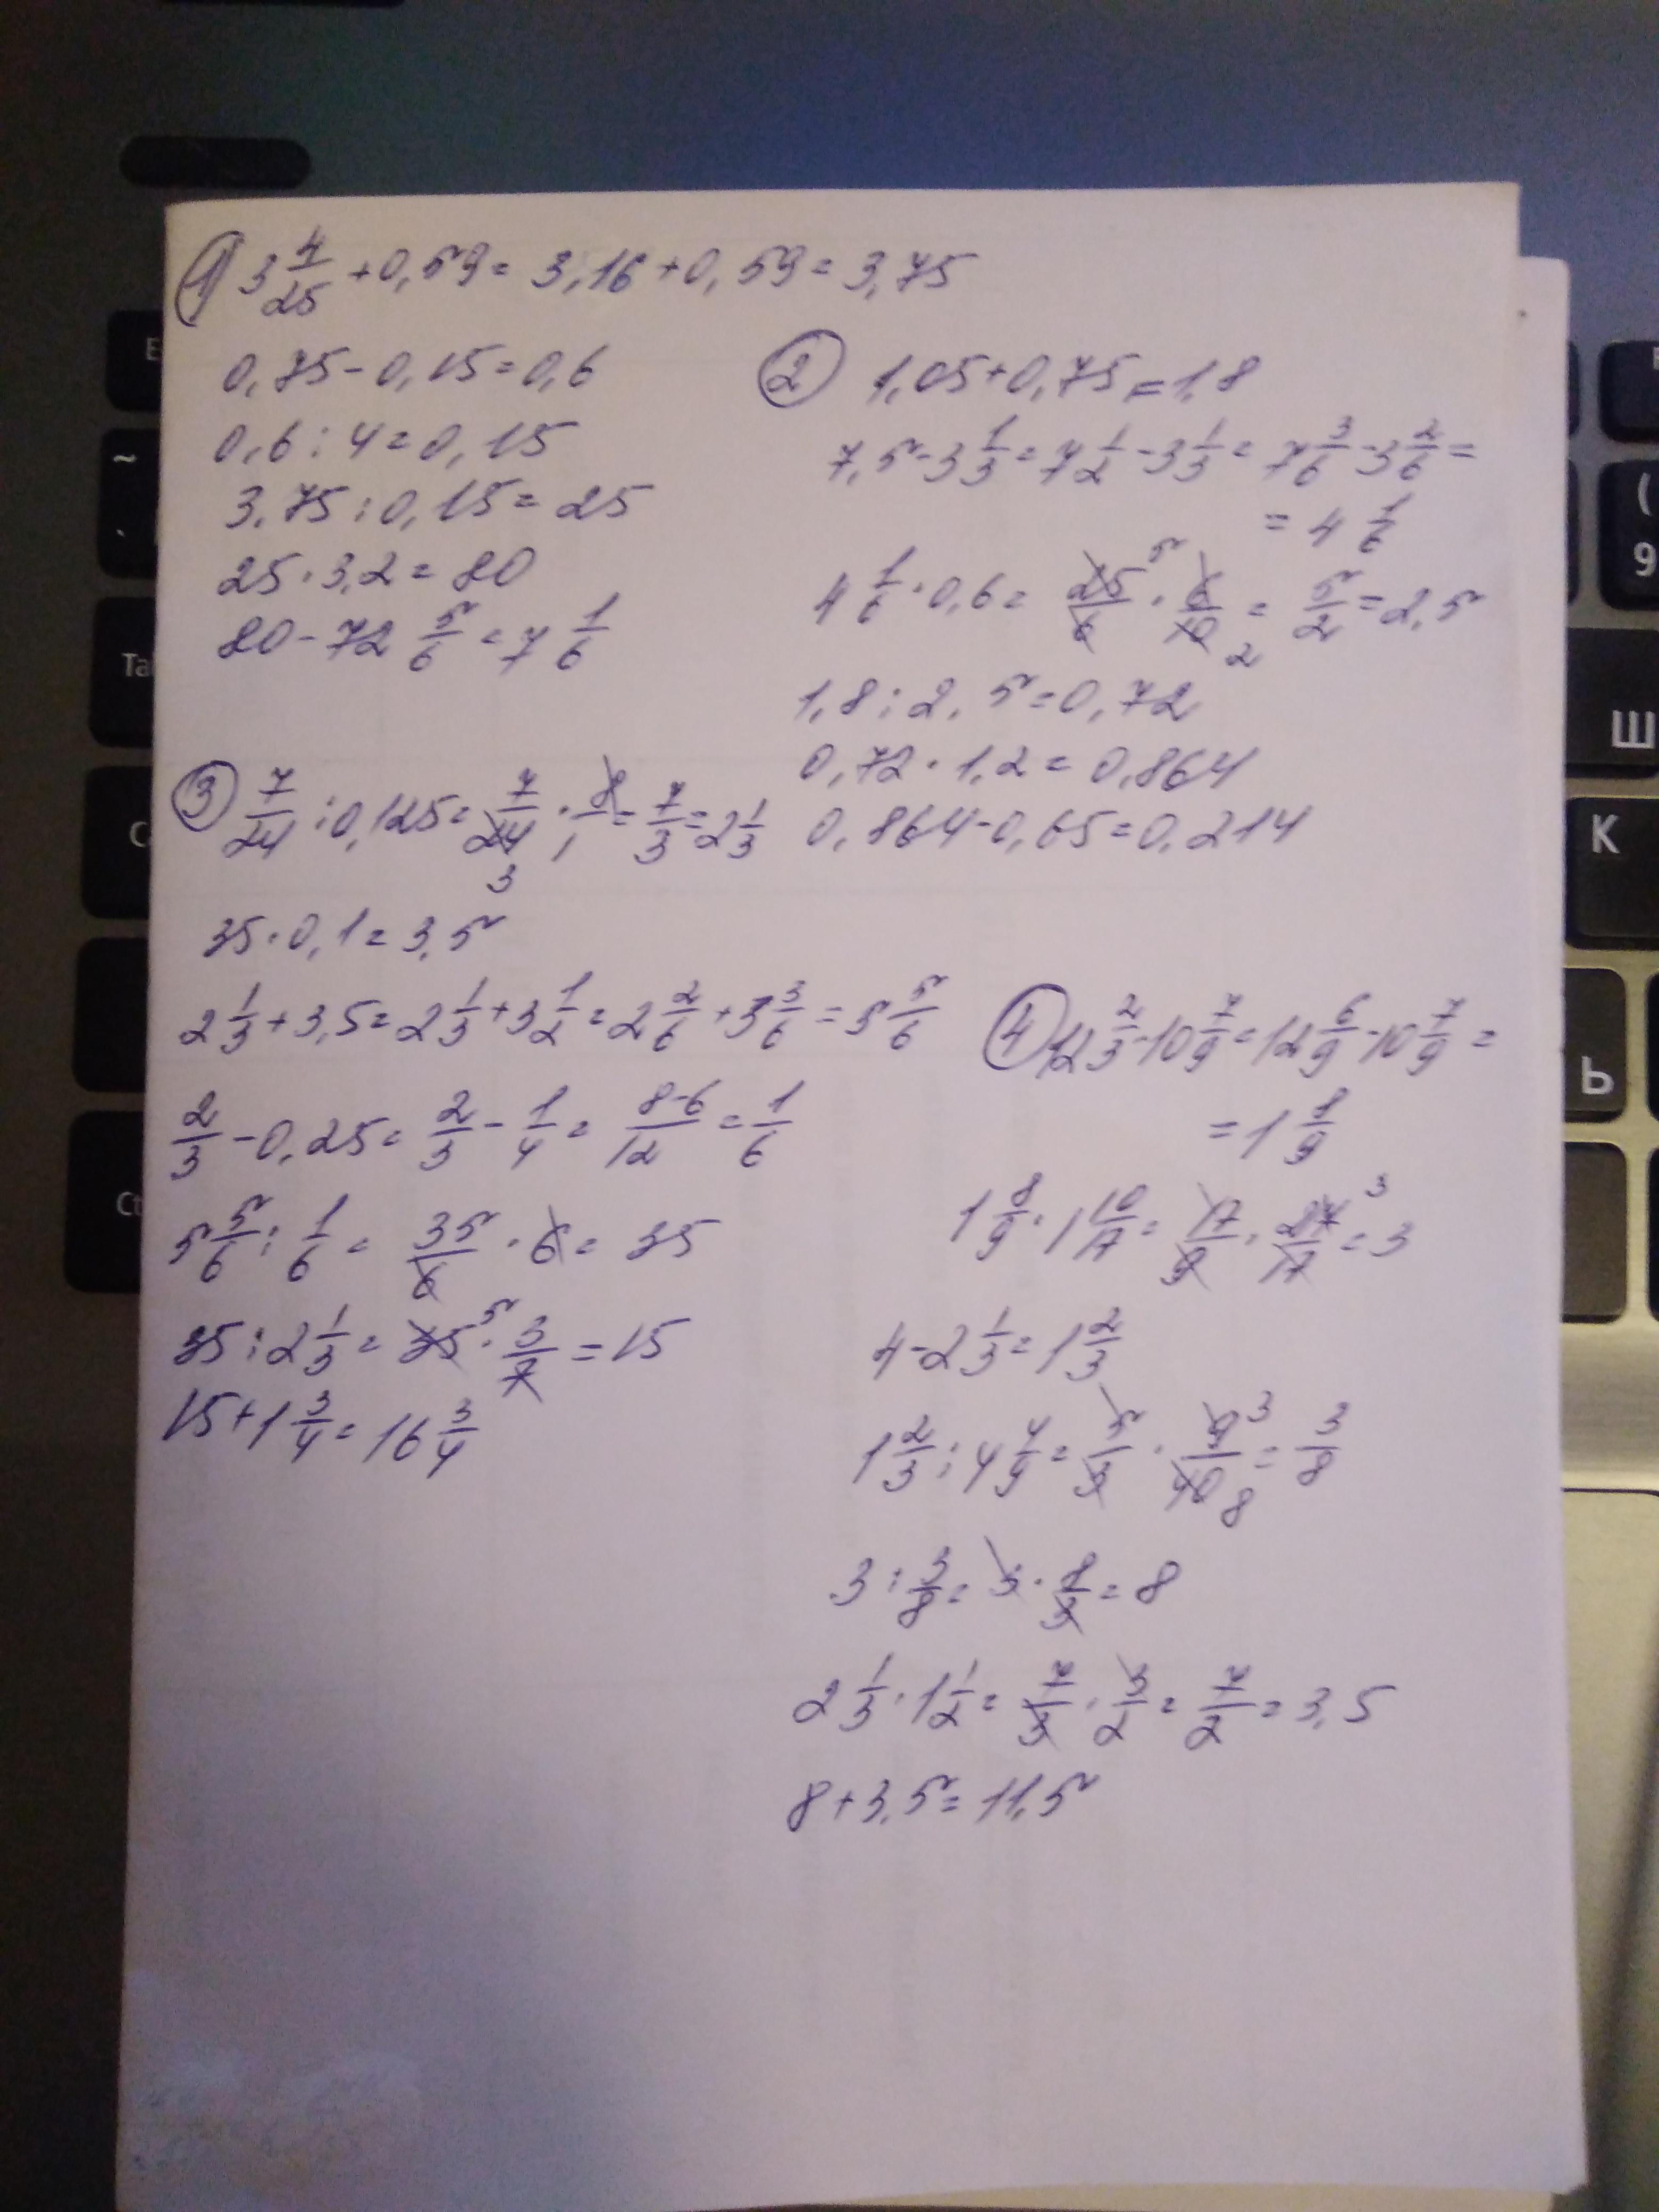 ① 3 4/25 + 0,59 = 3,16 + 0,59 = 3,75
0,75 - 0,15 = 0,6
0,6 : 4 = 0,15
3,75 : 0,15 = 25
25 · 3,2 = 80
80 - 72 5/6 = 7 1/6
② 1,05 + 0,75 = 1,8
7,5 - 3 1/3 = 7 1/2 - 3 1/3 = 7 3/6 - 3 2/6 =
= 4 1/6
4 1/6 · 0,6 = 25/6 · 6/10 = 5/2 = 2,5
5
2
1,8 : 2,5 = 0,72
0,72 · 1,2 = 0,864
0,864 - 0,65 = 0,214
③ 7/24 : 0,125 = 7/24 · 8/1 = 7/3 = 2 1/3
3
35 · 0,1 = 3,5
2 1/3 + 3,5 = 2 1/3 + 3 1/2 = 2 2/6 + 3 3/6 = 5 5/6
2/3 - 0,25 = 2/3 - 1/4 = 8-6/12 = 1/6
5 5/6 : 1/6 = 35/6 · 6 = 35
35 : 2 1/3 = 35 · 3/7 = 15
5
15 + 1 3/4 = 16 3/4
④ 12 2/3 - 10 7/9 = 12 6/9 - 10 7/9 =
= 1 8/9
1 8/9 · 1 10/17 = 17/9 · 27/17 = 3
3
4 - 2 1/3 = 1 2/3
1 2/3 : 4 4/9 = 5/3 · 9/40 = 3/8
3
8
3 : 3/8 = 3 · 8/3 = 8
2 1/3 · 1 1/2 = 7/3 · 3/2 = 7/2 = 3,5
8 + 3,5 = 11,5
~
(
9
Ш
К
Ь